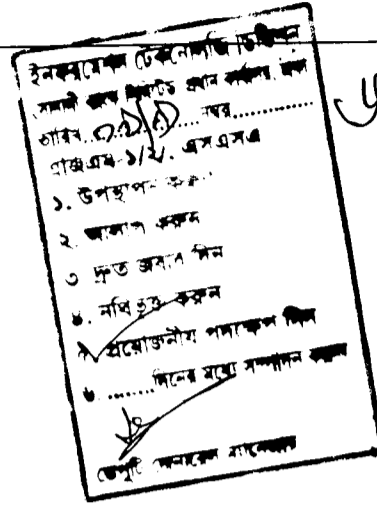 ইনফরমেশন টেকনোলজি ডিভিশন
সোনালী ব্যাংক লিমিটেড প্রধান কার্যালয়, ঢাকা
তারিখ.......... নম্বর..............
এজিএম-১/২/. এসএসএ
১. উপস্থাপন করুন
২. আলাপ করুন
৩ দ্রুত জবাব দিন
৪. নথিভুক্ত করুন
৫. প্রয়োজনীয় পদক্ষেপ নিন
৬. ........ দিনের মধ্যে সম্পাদন করুন
ডেপুটি জেনারেল ম্যানেজার